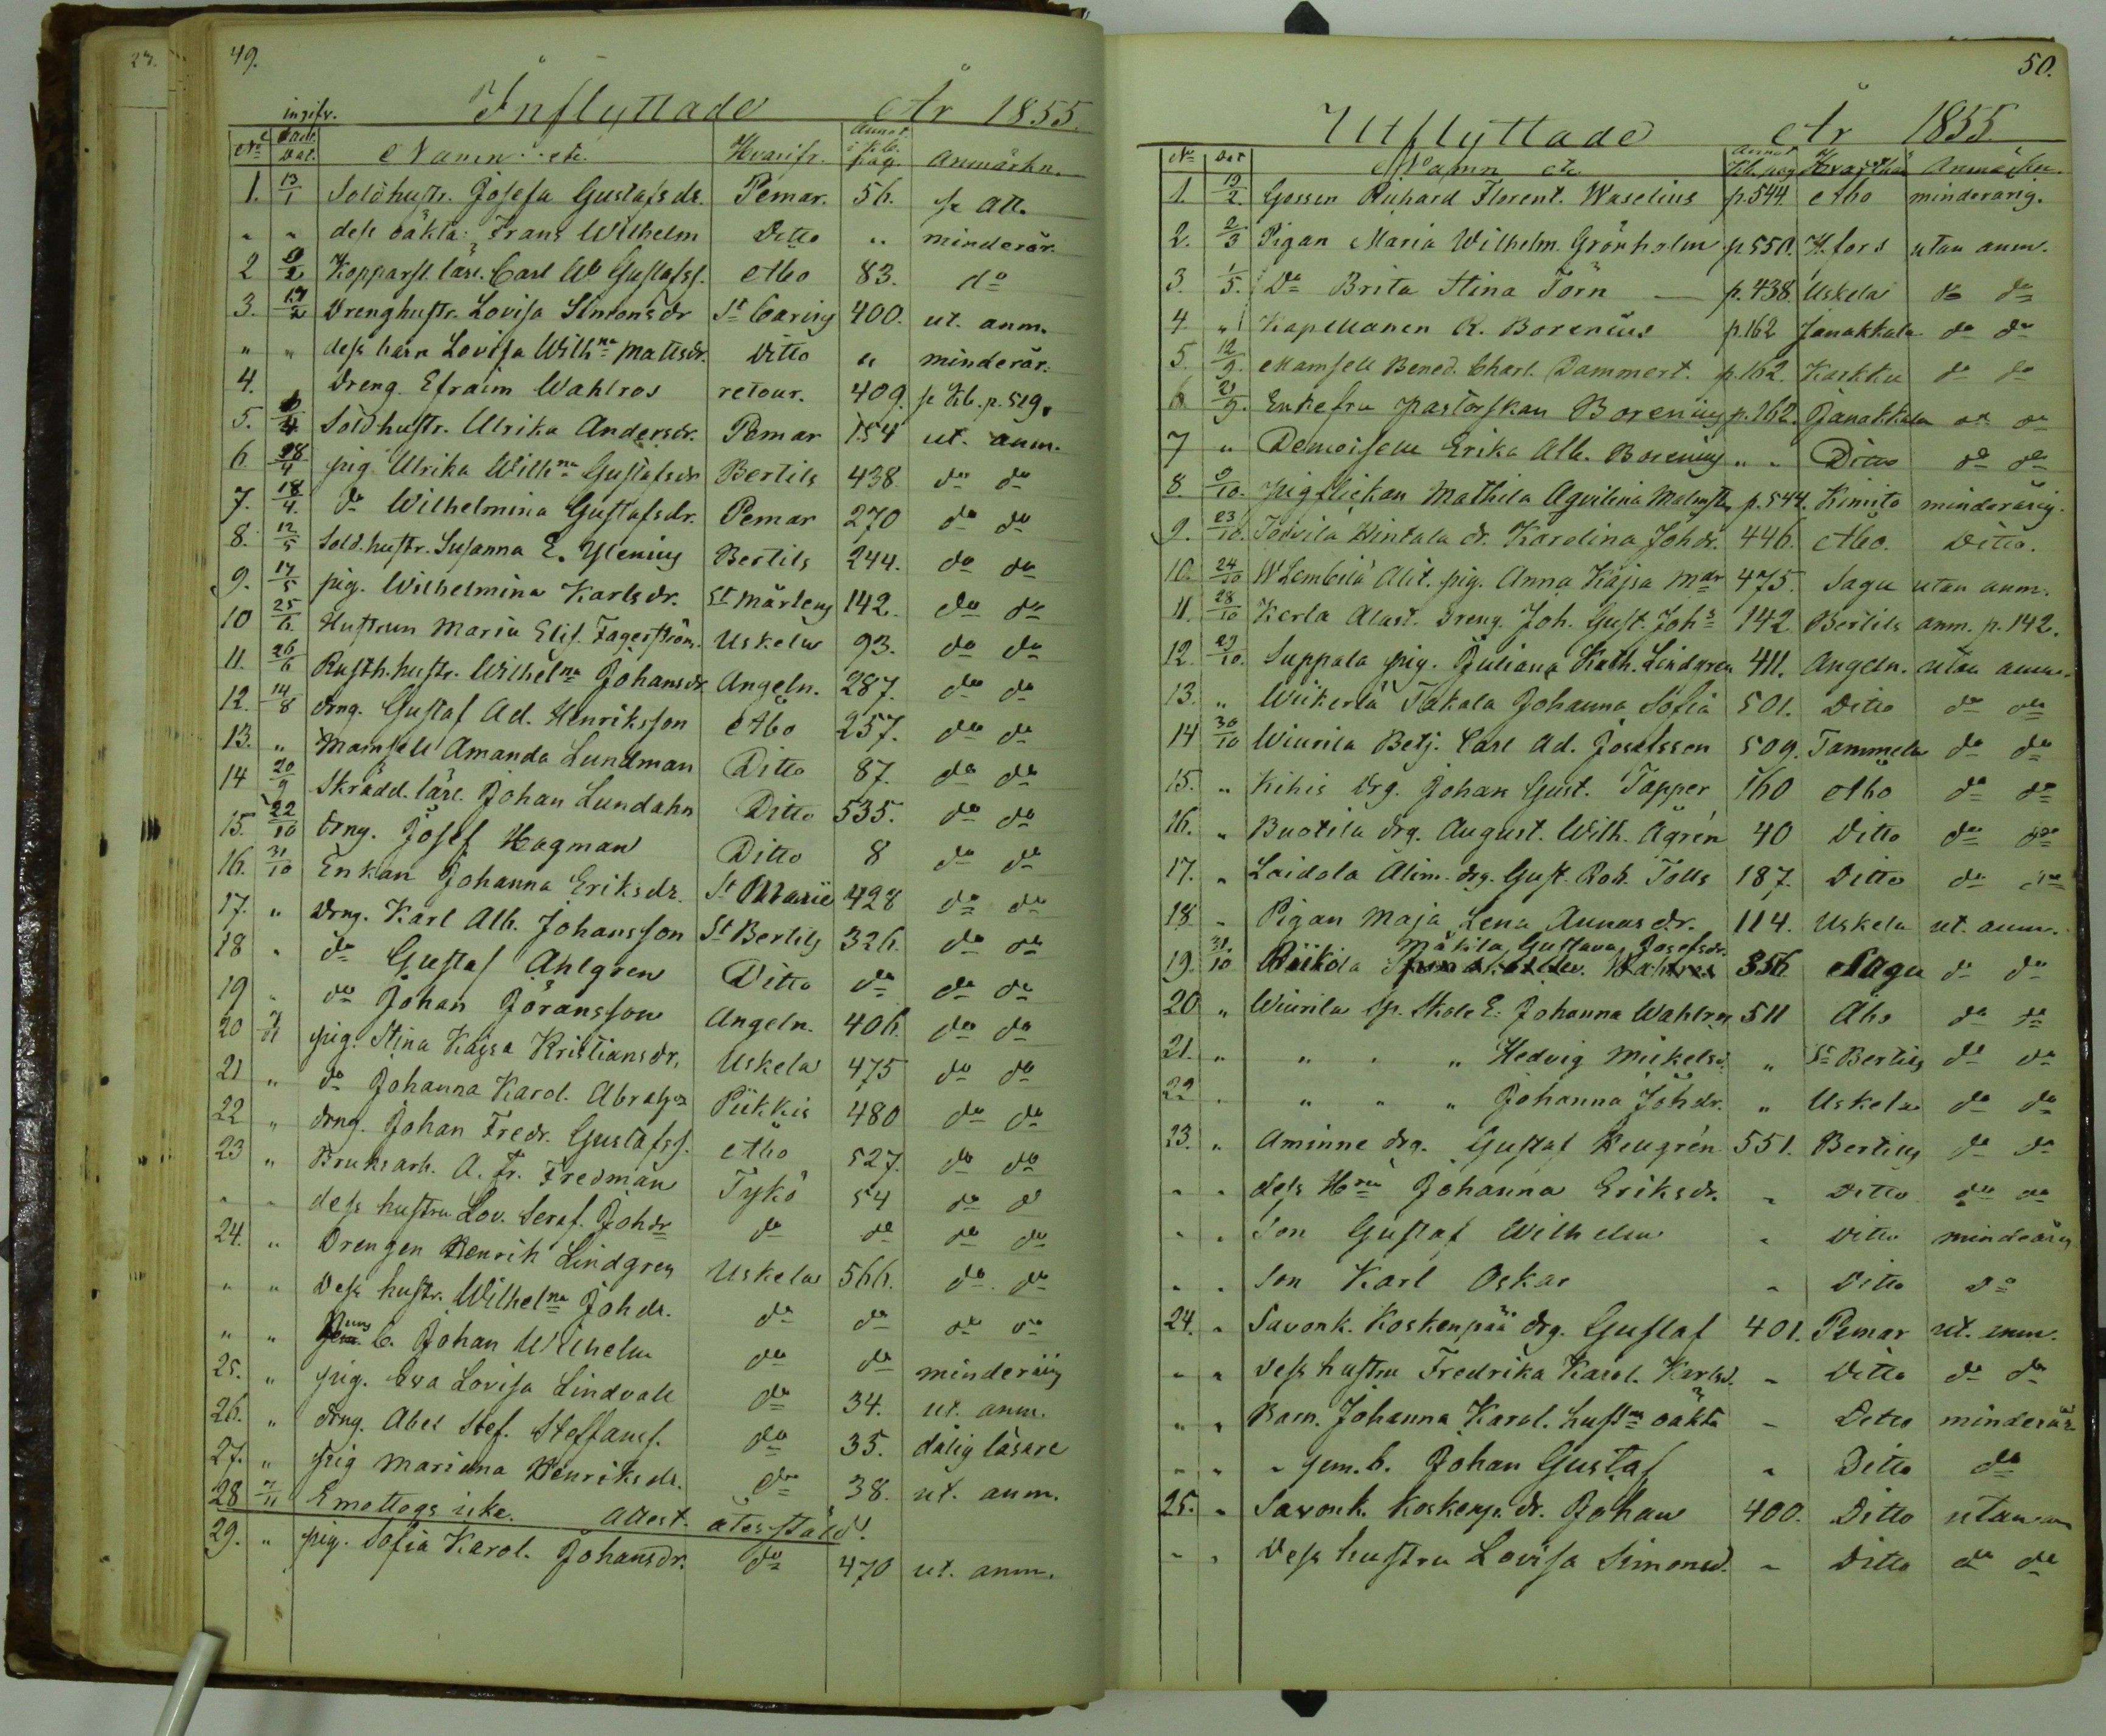 49.
Inflyttade År 1855.
ingifv.
No Attest. Dat. Namn etc. Hvarifr. Annot. i K.b. pag. Anmärkn.
1. 13/1 Soldhustr. Josefa Gustafsdr. Pemar. 56. se att.
" " dess oäkta: Frans Wilhelm Ditto " minderår.
2 9/2 Kopparsl. lärl. Carl Ad Gustafss. Åbo 83. do
3. 17/2 Drenghustr. Lovisa Simonsdr St Karins 400. ut. anm.
" " dess barn Lovisa Wilhna Mattsdr. Ditto " minderår.
4. Dreng Efraim Wahlros retour. 409. se Kb. p. 519.
5. 6/4 Soldhustr. Ulrika Andersdr. Pemar 154 ut. anm.
6 18/4 pig Ulrika Wilhna Gustafsdr Bertils 438 do do
7. 18/4. do Wilhelmina Gustafsdr. Pemar 270 do do
8. 12/5 Sold.hustr. Susanna E. Ylenius Bertils 244. do do
9. 17/5 pig. Wilhelmina Karlsdr. St Mårtens 142. do do
10 25/6. Hustrun Maria Elis. Fagerström. Uskela 93. do do
11. 26/6 Rusth.hustr. Wilhelna Johansdr Angeln. 287. do do
12. 14/8 drng. Gustaf Ad. Henriksson Åbo 257. do do
13. " Mamsell Amanda Lundman Ditto 87. do do
14 20/9 Skrädd. lärl. Johan Lundahn Ditto 535. do do
15. 22/10 drng. Josef Hagman Ditto 8 do do
16. 31/10 Enkan Johanna Eriksdr. St Mariæ 428 do do
17. " drng. Karl Alb. Johansson St Bertils 326. do do
18 " do Gustaf Ahlgren Ditto do do do
19 " do Johan Göransson Angeln. 406. do do
20 7/11 pig. Stina Kajsa Kristiansdr. Uskela 475 do do
21 " do Johanna Karol. Abrahsdr Piikkis 480 do do
22 " drng. Johan Fredr. Gustafss. Åbo 527. do do
23 " Bruksarb. A. Fr. Fredman Tykö 54 do do
" " dess hustru Lov. Seraf. Johdr do do do do
24. " Drengen Henrik Lindgren Uskela 566. do do
" " Dess hustr. Wilhelna Johdr. do do do do
" " b. Johan Wilhelm do do minderårig
25. " pig. Eva Lovisa Lindvall do 34. ut. anm.
26. " drng. Abel Stef. Steffanss. do 35. dålig läsare
27. " pig Mariana Henriksdr. do 38. ut. anm.
28 7/11 Emottogs icke. Attest. återstäld.
29. " pig. Sofia Karol. Johansdr. do 470 ut. anm.
50.
Utflyttade År 1855
No Dat Namn etc. Annot Kb. pag Hvarthän Anmärkn.
1. 19/2. Gossen Richard Florent. Waselius p. 544. Åbo minderårig.
2. 2/3 Pigan Maria Wilhelm. Grönholm p 550. H.fors utan anm.
3. 1/5. Do Brita Stina Törn p. 438. Uskela do do
4. " Kapellanen R. Borenius p. 162 Janakkala do do
5. 12/9. Mamsell Bened. Charl. Dammert. p. 162. Karkku do do
6 29/9. Enkefru Pastorskan Borenius p. 162. Janakkala do do
7 " Demoiselle Erika Alb. Borenius " " Ditto do do
8. 9/10. pigflickan Mathila Aqvilina Malmst p. 544. Kimito minderårig.
9. 23/10. Toivila Hintala dr. Karolina Johdr. 446. Åbo. Ditto.
10. 24/10 W Lembilä Alit. pig. Anna Kajsa Mdr 475. Sagu utan anm.
11. 28/10 Kerla Alast. dreng. Joh. Gust. Johs 142 Bertils anm. p. 142.
12. 29/10. Suppala pig. Juliana Kath. Lindgren 411. Angeln. utan anm.
13. " Wiikerlä Takala Johanna Sofia 501. Ditto do do
14 30/10 Wiurila Betj. Carl Ad. Josefsson 509. Tammela do do
15. " Kihis drg. Johan Gust. Tapper 160 Åbo do do
16. " Buotila drg. August. Wilh. Ågrén 40 Ditto do do
17. " Laidola Alim. drg. Gust. Rob. Tolls 187. Ditto do do
18. " Pigan Maja Lena Annasdr. 114. Uskela ut. anm.
Mäkila Gustava Josefsdr.
19. 31/10 Riikola 356 Sagu do do
20 " Wiurila Sp. Skole E. Johanna Wahlros 511 Åbo do do
21. " " " " Hedvig Mickelsd. " St Bertils do do
22 " " " " Johanna Johdr. " Uskela do do
23. " Åminne drg. Gustaf Heugrén 551. Bertils do do
" " dess Hru Johanna Eriksdr. " Ditto do do
" " Son Gustaf Wilhelm " Ditto minderårig
" " Son Karl Oskar " Ditto do
24. " Savonk. Koskenpää drg. Gustaf 401. Pemar ut. anm.
" " dess hustru Fredrika Karol. Karlsd. " Ditto do do
" " Barn. Johanna Karol. hustns oäkta " Ditto minderår
" " " gem. b. Johan Gustaf " Ditto do
25. " Savonk. Koskenp. dr. Johan 400. Ditto utan an
" " Dess hustru Lovisa Simonsd. " Ditto do do